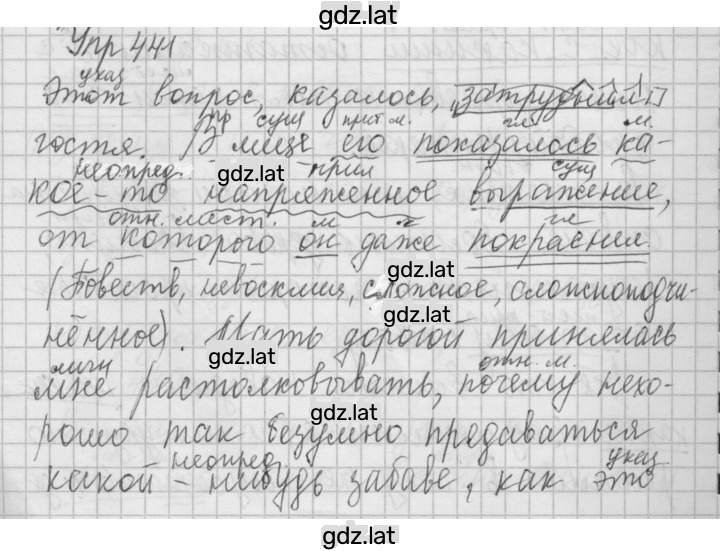 gdz.lat
Упр 441
указ
Этот вопрос, казалось, затруднил
пр сущ прит. м. гл м.
гостя. В лице его показалось ка-
gdz.lat
неопред. прил сущ
кое-то напряженное выражение,
отн. мест. м гл
от которого он даже покраснел.
gdz.lat
(Повеств, невосклиц, сложное, сложноподчи-
gdz.lat
нённое). Мать дорогой принялась
gdz.lat
личн отн. м.
мне растолковывать, почему нехо-
gdz.lat
рошо так безумно предаваться
неопред указ
какой-нибудь забаве, как это
gdz.lat
gdz.lat